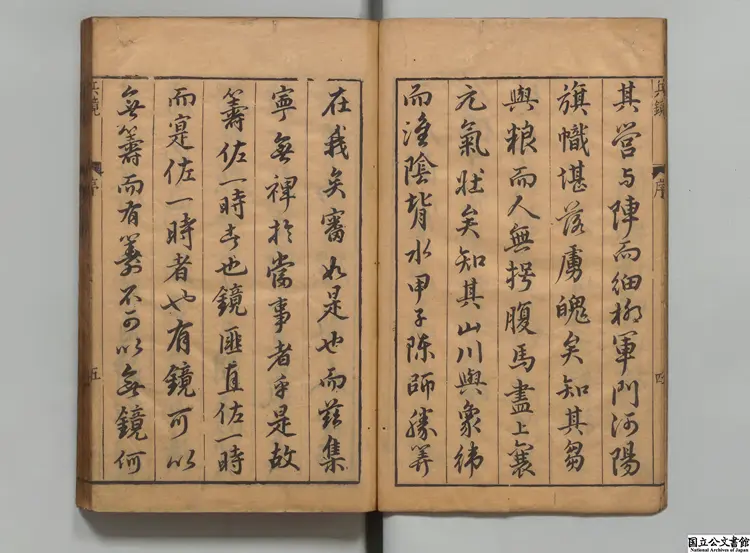 兵鏡 序 四
其營与陣而細栁軍門河陽
旗幟堪落虜魄矣知其芻
與粮而人無枵腹馬盡上襄
元氣壯矣知其山川與象緯
而淮陰背水甲子陳師勝筭
在我矣審如是也而茲集
寧無裨於當事者乎是故
籌佐一時者也鏡匪直佐一時
而寔佐一時者也有鏡可以
無籌而有籌不可以無鏡何
兵鏡 序 五
国立公文書館
National Archives of Japan